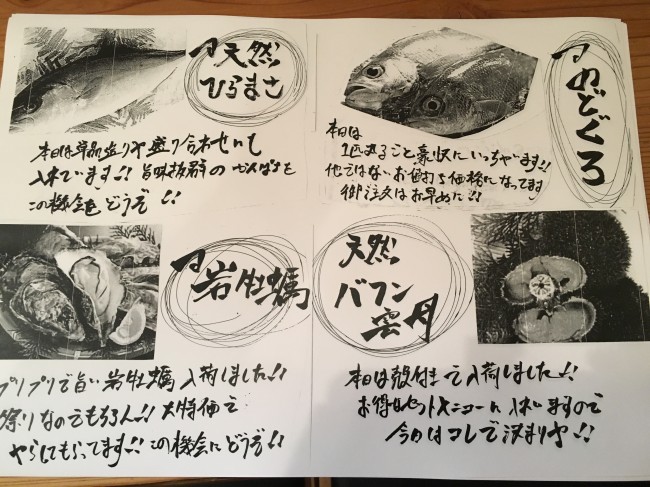 天然
ひらまさ
本日は単品盛りや盛り合わせにも
入れています!! 旨味抜群の ひらまさを
この機会を どうぞ !!
のどぐろ
本日は
1匹丸ごと豪快にいっちゃいます!!
他ではない お値打ち価格になってます
御注文はお早めに!!
岩牡蠣
プリプリで旨い 岩牡蠣 入荷しました!!
祭りなのでもちろん!! 大特価で
やらしてもらってます!! この機会にどうぞ!!
天然
バフン
雲丹
本日は殻付きで入荷しました!!
お得なセットメニューに 入れていますので
今日はコレで決まりや!!